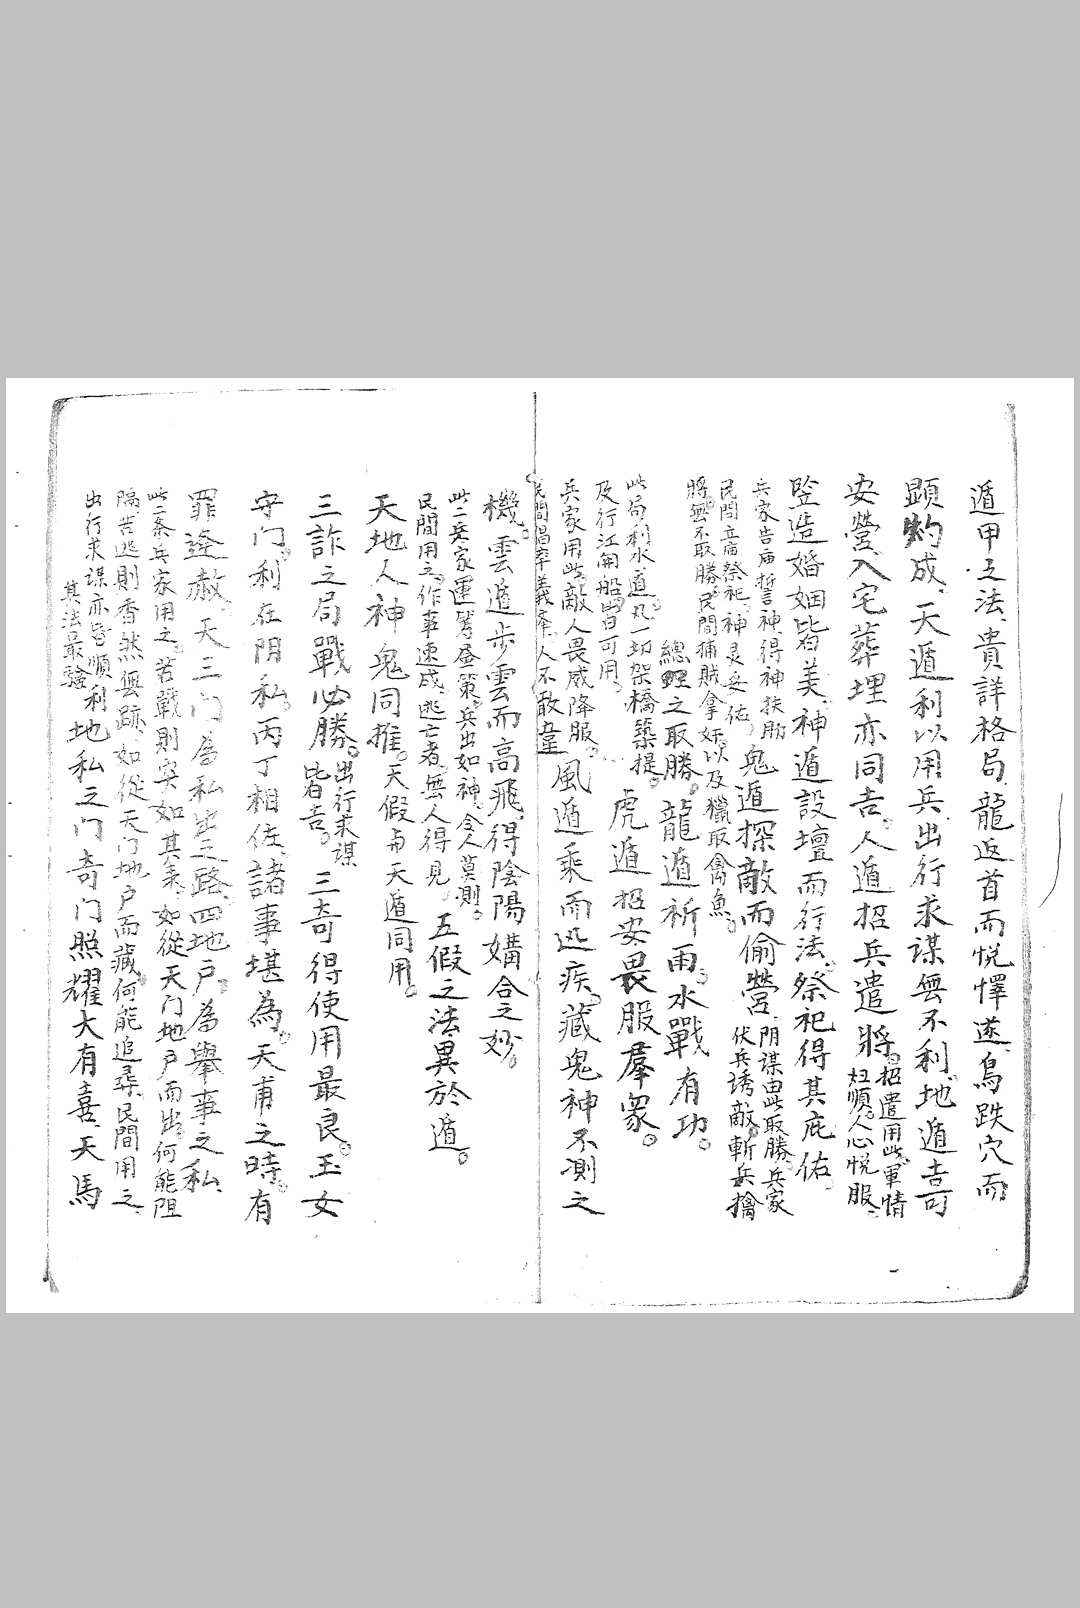 遁甲之法、貴詳格局、龍返首而悅懌遂、鳥跌穴而
顕灼成、天遁利以用兵、出行求謀無不利、地遁喜
安營、入宅葬埋亦同吉。人遁招兵遣將。招遣用此、軍情
妞順。人心悅服。
竪造婚姻皆美、神遁設壇而行法。祭祀得其庇佑。
兵家告庙誓神、得神扶助
民間立庙祭祀、神灵妥佑。鬼遁探敵而偷營、阴謀由此取勝。兵家
伏兵誘敵。斬兵擒
將。無不取勝。民間捕賊拿奸。以及獵取禽魚。
總經之取勝。龍遁祈雨。水戰有功。
此局利水道。凡一切架橋築提。
及行江開船。皆可用。虎遁招安畏服羣衆。
兵家用此。敵人畏威降服。
民間倡率義举、人不敢違。風遁乘而迅疾。藏鬼神不測之
機。雲遁步雲而高飛、得陰陽媾合之妙。
此二兵家運筹屋策。兵出如神、令人莫測。
民間用之。作事速成、逃亡者。無人得見。五假之法異於遁。
天地人神鬼同推。天假與天遁同用。
三詐之局戰必勝。出行求謀
皆吉。三奇得使用最良。玉女
守门。利在阴私。丙丁相佐、諸事堪為。天甫之時。有
罪逢赦。天三门為私出之路、四地户。為舉事之私、
此二条兵家用之。苦戰則突如其来、如從天门地户而出。何能阻
隔苦逃則杳然無跡、如從天门地户而藏。何能追尋、民間用之、
出行求謀亦皆順利
其法最驗地私之门奇门照耀大有喜、天馬